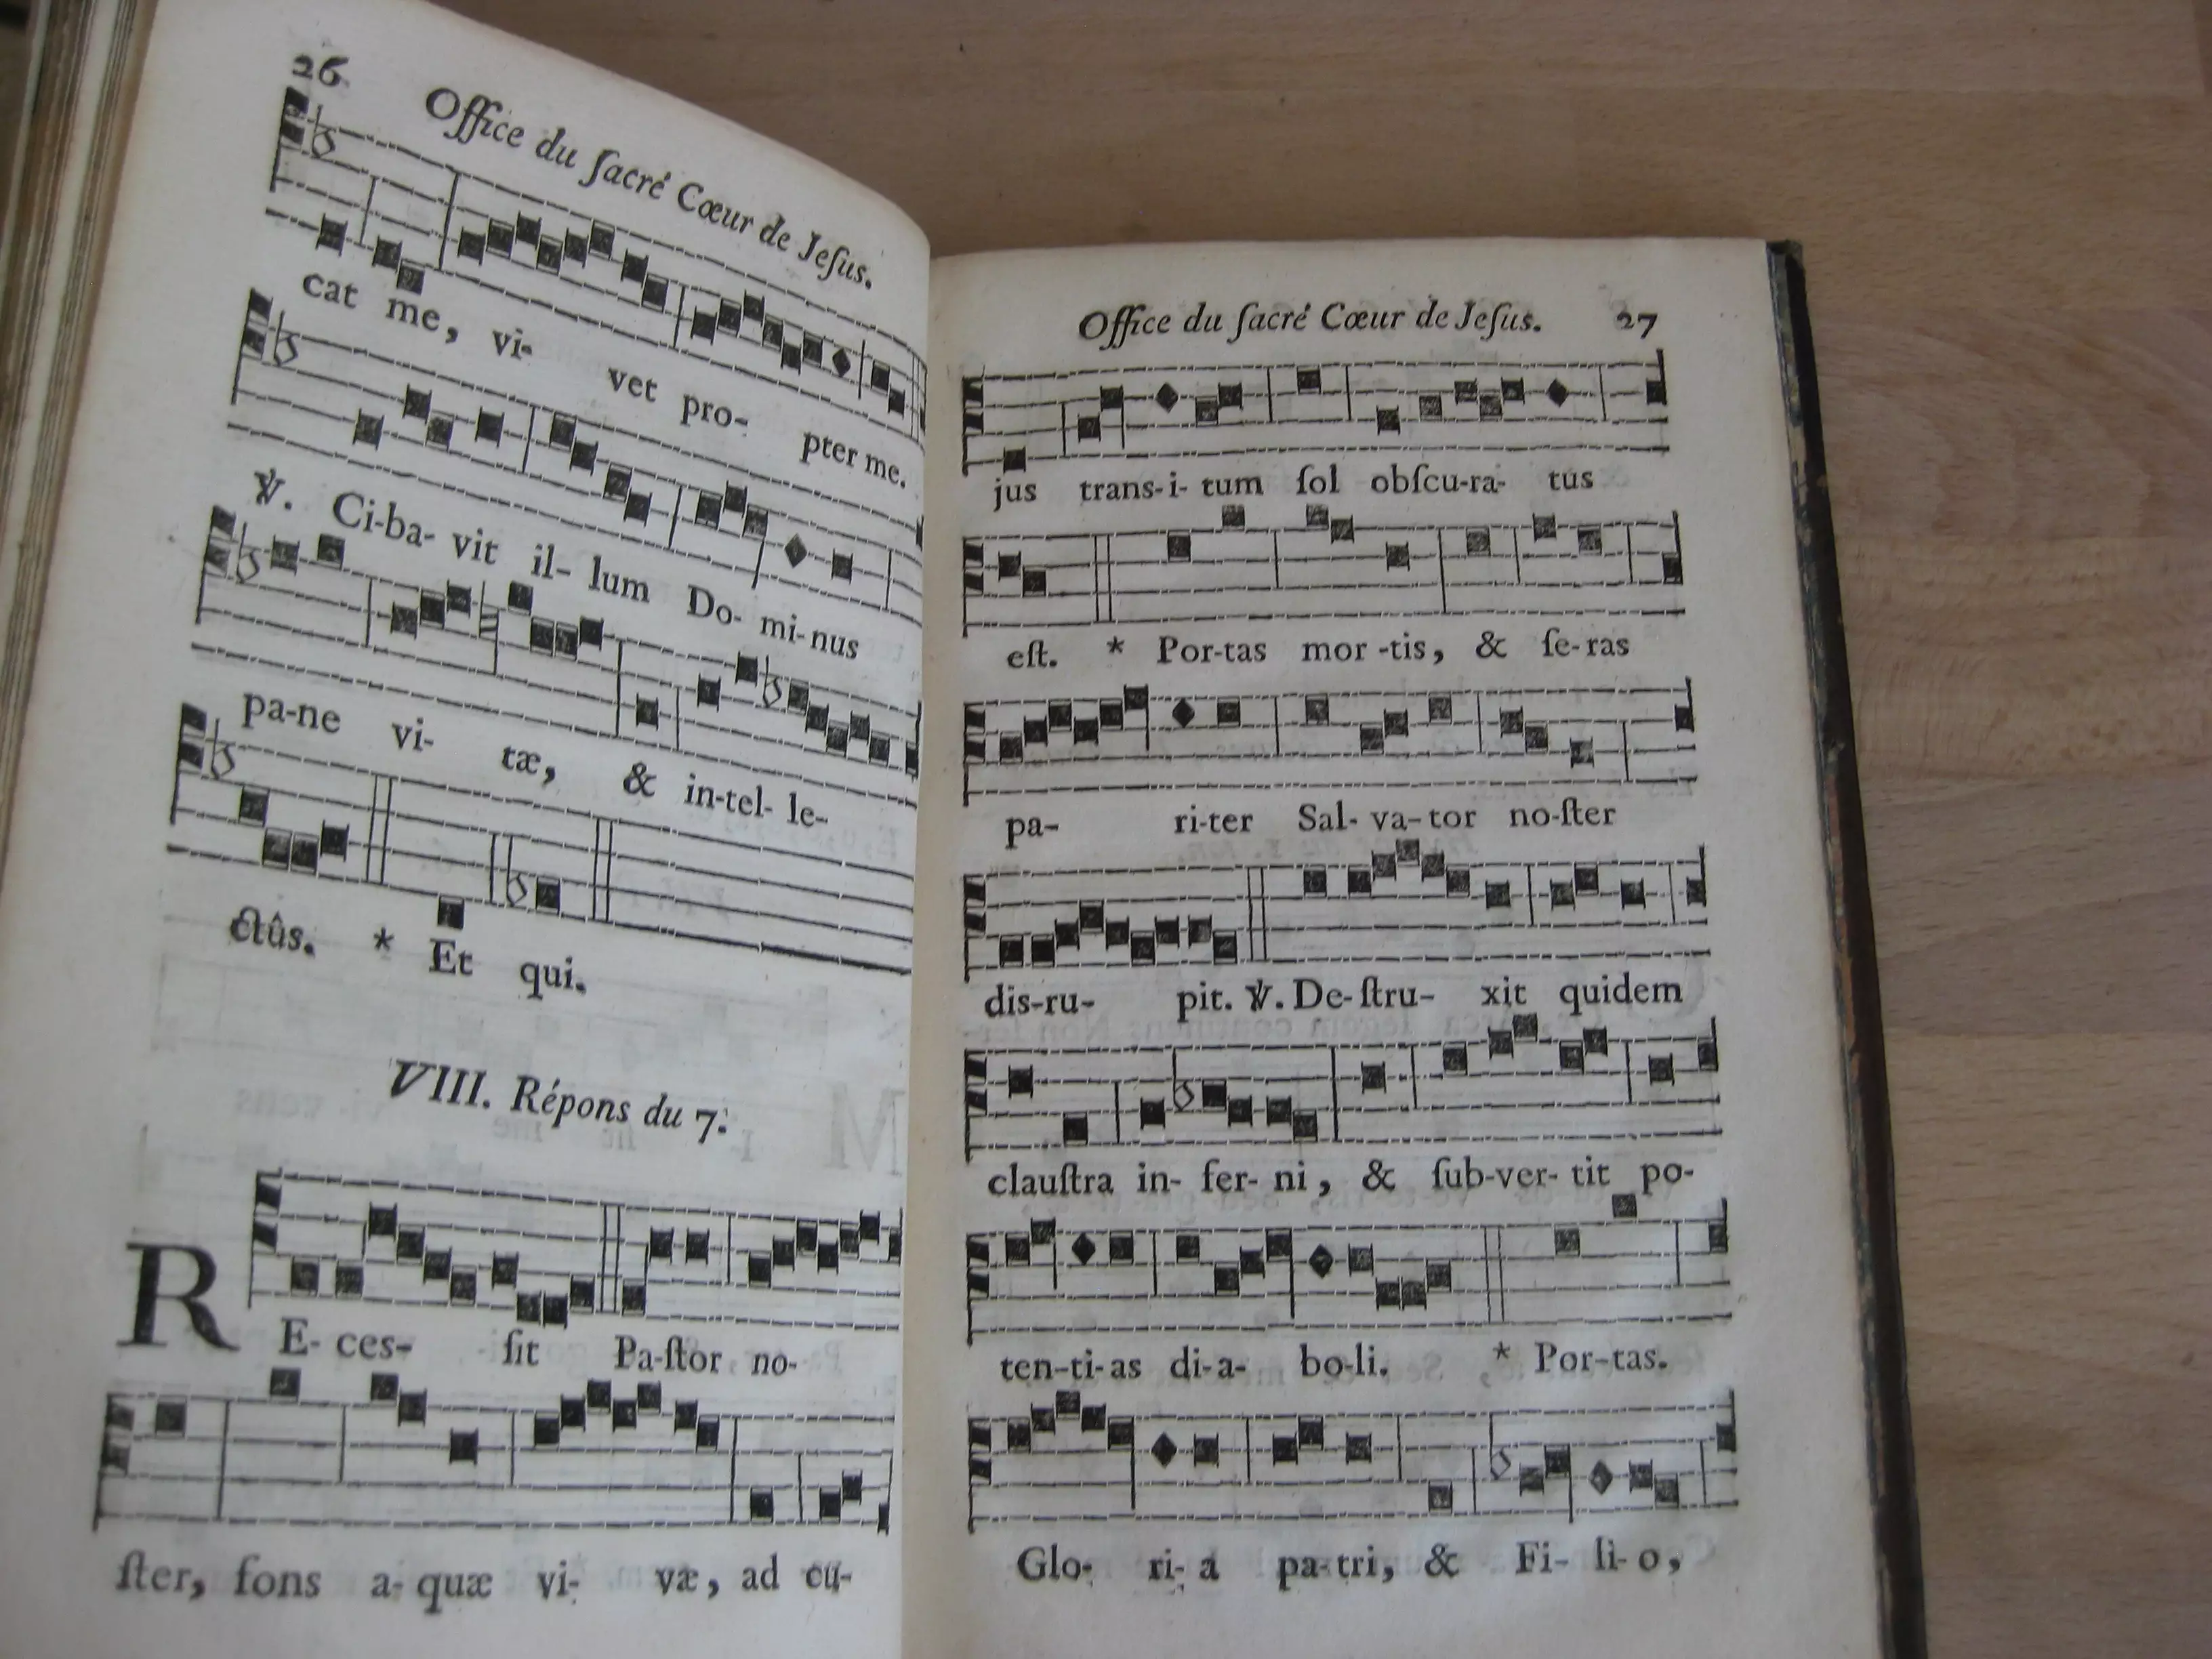 26
Office du ſacré Cœur de Jeſus.
cat me, vi- vet pro- pter me.
℣. Ci-ba- vit il- lum Do- mi-nus
pa-ne vi- tæ, & in-tel- le-
ctûs. * Et qui.
VIII. Répons du 7.
RE- ces- ſit Pa-ſtor no-
ſter, fons a- quæ vi- væ, ad cu-
Office du ſacré Cœur de Jeſus. 27
jus trans-i- tum ſol obſcu-ra- tus
eſt. * Por-tas mor -tis, & ſe-ras
pa- ri-ter Sal- va-tor no-ſter
dis-ru- pit. ℣. De-ſtru- xit quidem
clauſtra in- fer- ni, & ſub-ver- tit po-
ten-ti-as di-a- bo-li. * Por-tas.
Glo- ri- a pa-tri, & Fi- li-o,